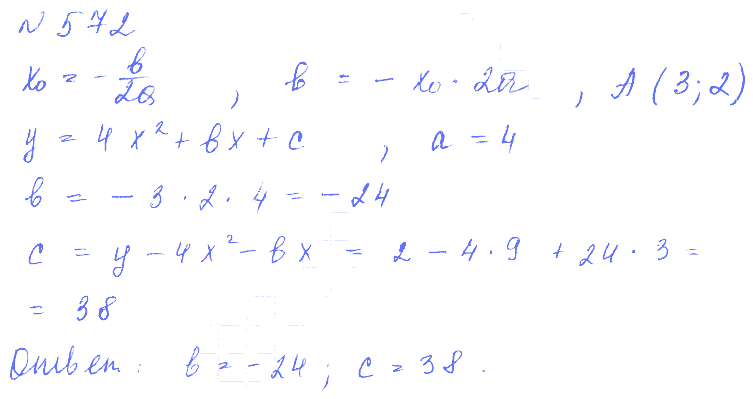 N 572
x₀ = - b/2a , b = - x₀ · 2a , A (3; 2)
y = 4x² + bx + c , a = 4
b = - 3 · 2 · 4 = - 24
c = y - 4x² - bx = 2 - 4 · 9 + 24 · 3 =
= 38
Ответ: b = - 24 ; c = 38 .